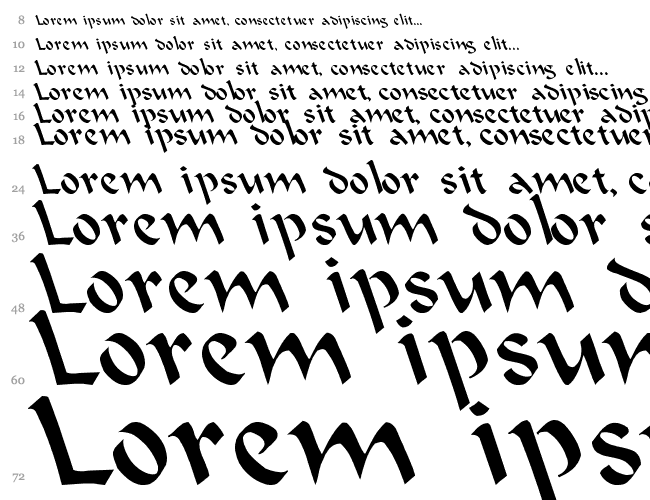 8 Lorem ipsum dolor sit amet, consectetuer adipiscing elit...
10 Lorem ipsum dolor sit amet, consectetuer adipiscing elit...
12 Lorem ipsum dolor sit amet, consectetuer adipiscing elit...
14 Lorem ipsum dolor sit amet, consectetuer adipiscing
16 Lorem ipsum dolor sit amet, consectetuer adip
18 Lorem ipsum dolor sit amet, consectetuer
24 Lorem ipsum dolor sit amet, c
36 Lorem ipsum dolor s
48 Lorem ipsum d
60 Lorem ipsum
72 Lorem ips